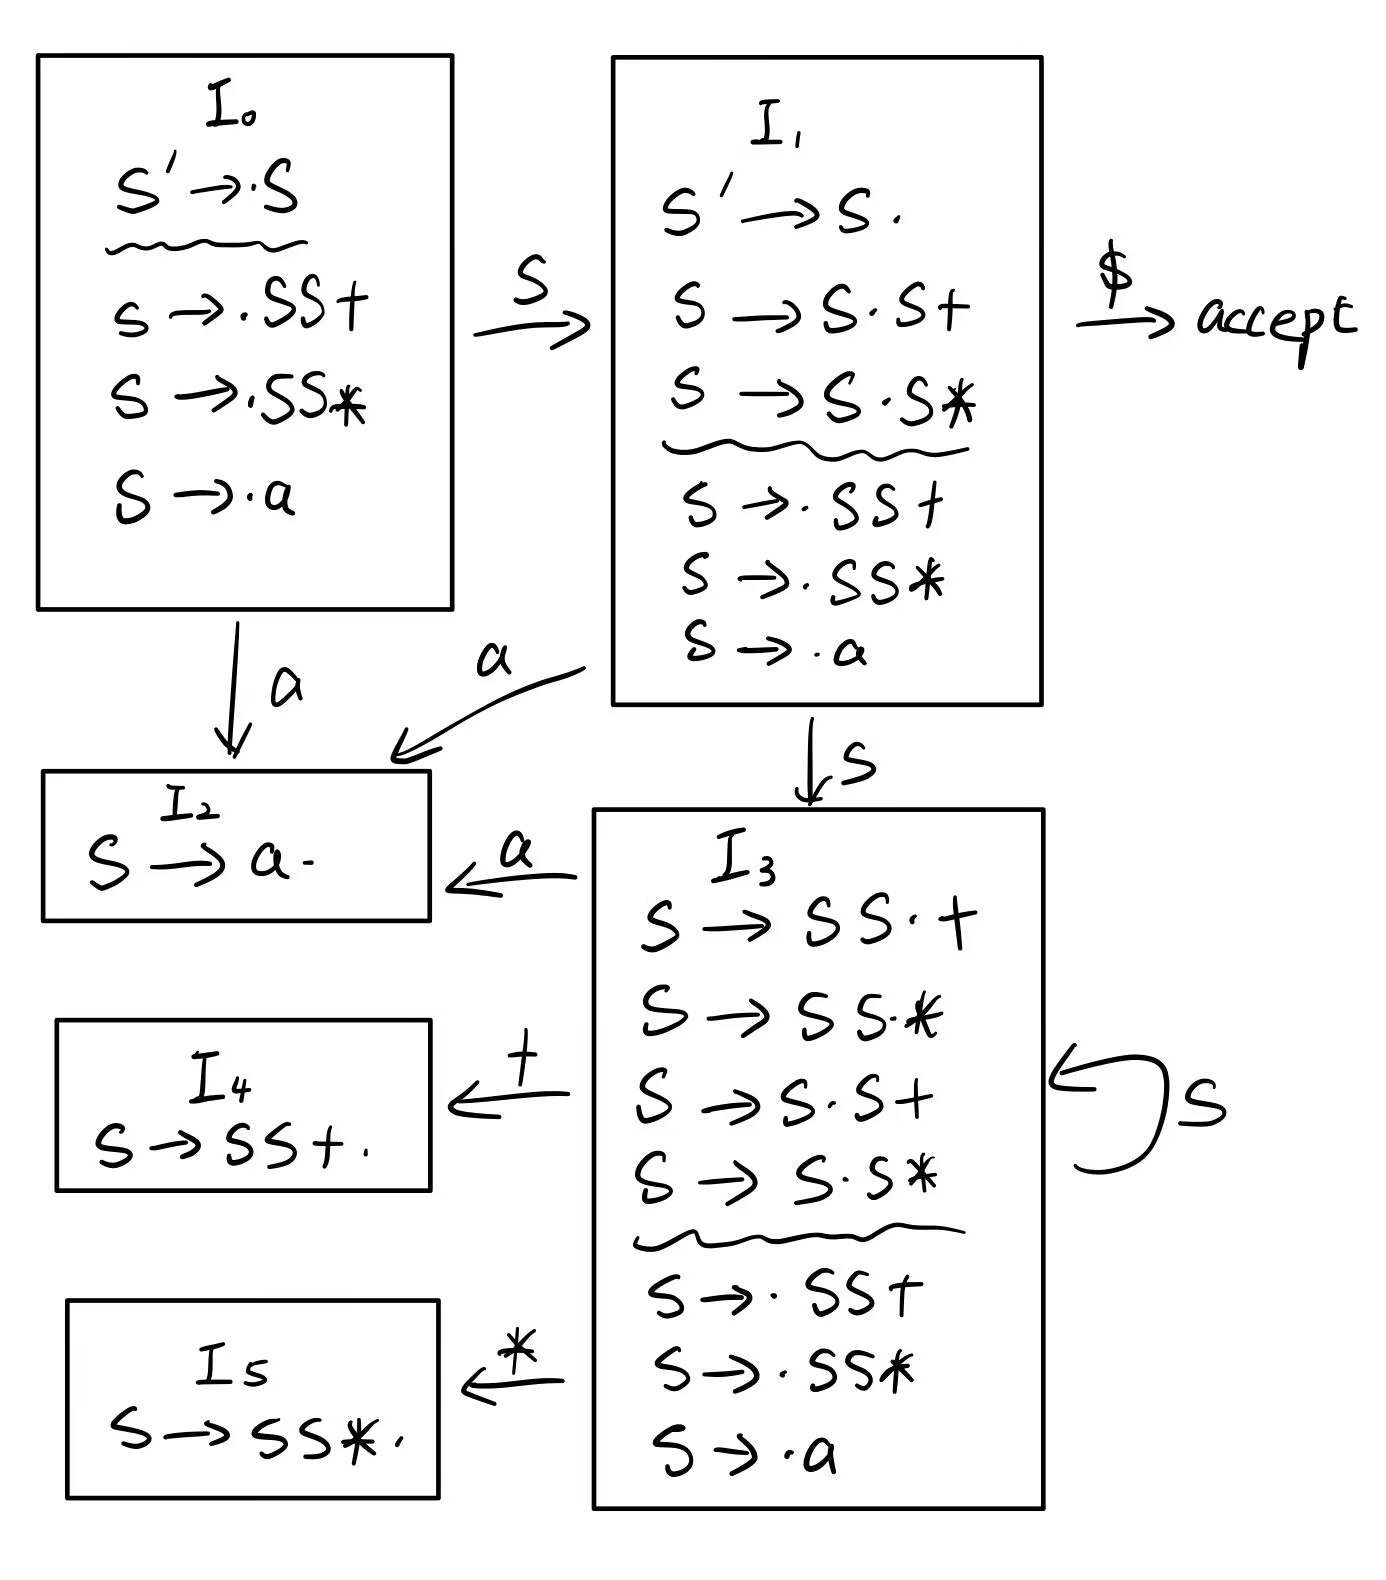 I₀
S' → ·S
S → ·SS+
S → ·SS*
S → ·a
S
I₁
S' → S·
S → S·S+
S → S·S*
S → ·SS+
S → ·SS*
S → ·a
$
accept
a
a
S
I₂
S → a·
a
I₃
S → SS·+
S → SS·*
S → S·S+
S → S·S*
S → ·SS+
S → ·SS*
S → ·a
S
+
I₄
S → SS+·
*
I₅
S → SS*·